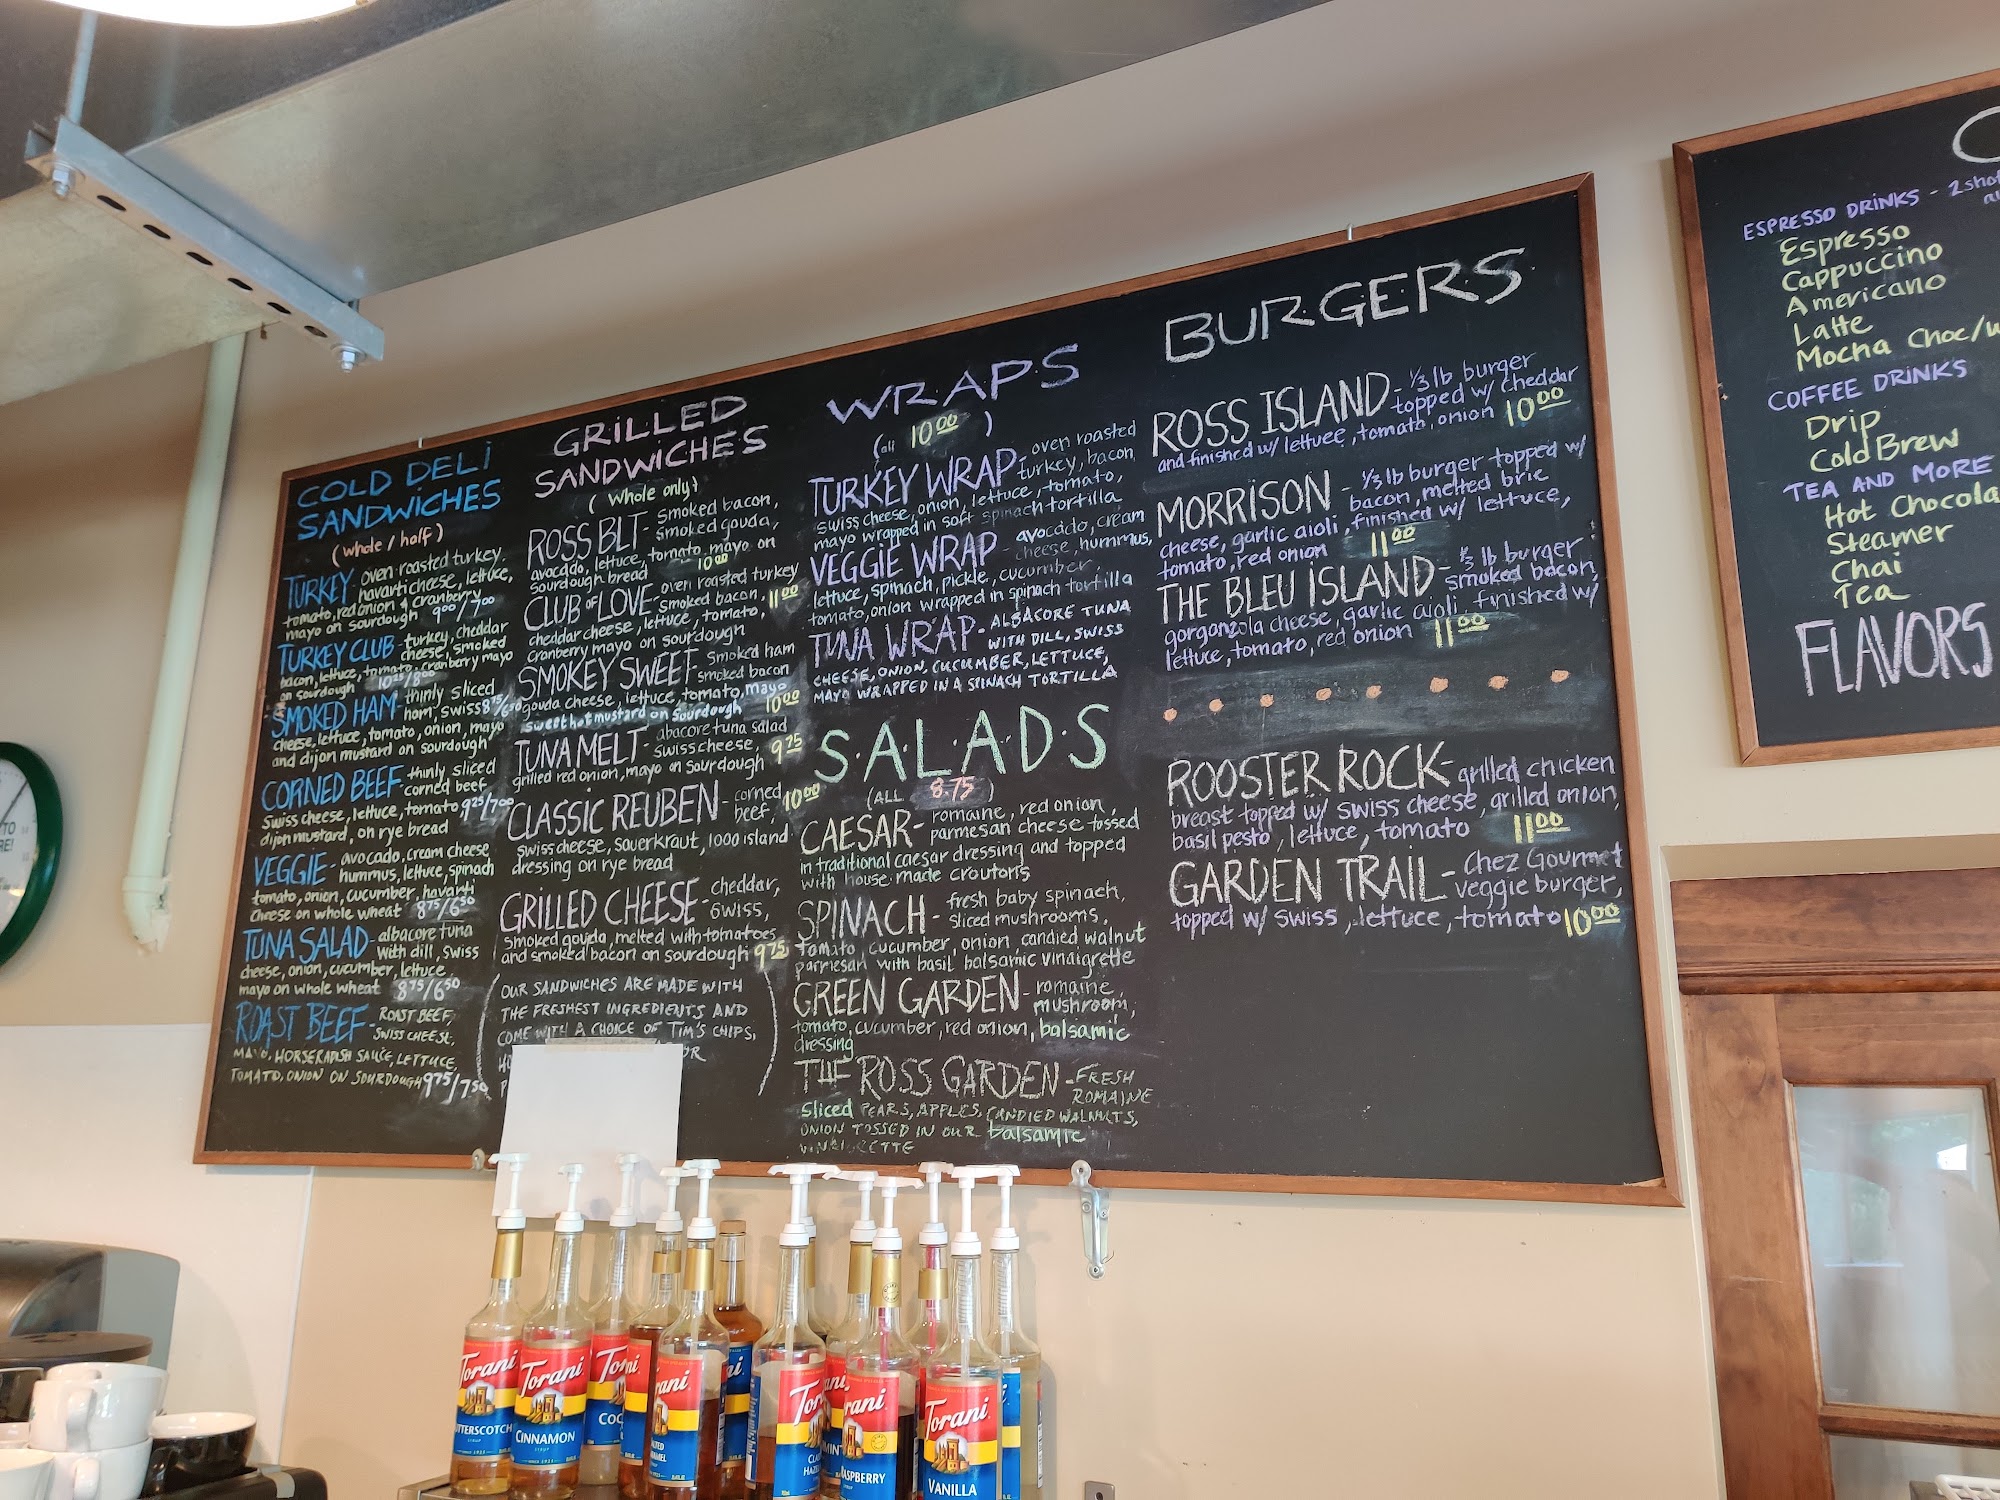 COLD DELI
SANDWICHES
(whole / half)
TURKEY - oven roasted turkey,
havarti cheese, lettuce,
tomato, red onion & cranberry
mayo on sourdough 9.00/7.00
TURKEY CLUB - turkey, cheddar
cheese, smoked
bacon, lettuce, tomato, cranberry mayo
on sourdough 10.25/8.00
SMOKED HAM - thinly sliced
ham, swiss 8.75/6.50
cheese, lettuce, tomato, onion, mayo
and dijon mustard on sourdough
CORNED BEEF - thinly sliced
corned beef,
Swiss cheese, lettuce, tomato 9.25/7.00
dijon mustard, on rye bread
VEGGIE - avocado, cream cheese
hummus, lettuce, spinach
tomato, onion, cucumber, havarti
cheese on whole wheat 8.75/6.50
TUNA SALAD - albacore tuna
with dill, swiss
cheese, onion, cucumber, lettuce
mayo on whole wheat 8.75/6.50
ROAST BEEF - ROAST BEEF,
SWISS CHEESE,
MAYO, HORSERADISH SAUCE, LETTUCE,
TOMATO, ONION ON SOURDOUGH 9.75/7.50
GRILLED
SANDWICHES
(whole only)
ROSS BLT - smoked bacon,
smoked gouda,
avocado, lettuce, tomato, mayo on
sourdough bread 10.00
CLUB OF LOVE - oven roasted turkey
smoked bacon, 11.00
cheddar cheese, lettuce, tomato,
cranberry mayo on sourdough
SMOKEY SWEET - smoked ham
smoked bacon
gouda cheese, lettuce, tomato, mayo
sweet hot mustard on sourdough 10.00
TUNA MELT - abacore tuna salad
swiss cheese, 9.25
grilled red onion, mayo on sourdough
CLASSIC REUBEN - corned
beef, 10.00
swiss cheese, sauerkraut, 1000 island
dressing on rye bread
GRILLED CHEESE - cheddar,
Swiss,
smoked gouda, melted with tomatoes
and smoked bacon on sourdough 9.75
(OUR SANDWICHES ARE MADE WITH
THE FRESHEST INGREDIENTS AND
COME WITH A CHOICE OF TIM'S CHIPS,
WRAPS
(all 10.00)
TURKEY WRAP - oven roasted
turkey, bacon,
swiss cheese, onion, lettuce, tomato,
mayo wrapped in soft spinach tortilla
VEGGIE WRAP - avocado, cream
cheese, hummus,
lettuce, spinach, pickle, cucumber,
tomato, onion wrapped in spinach tortilla
TUNA WRAP - ALBACORE TUNA
WITH DILL, SWISS
CHEESE, ONION, CUCUMBER, LETTUCE,
MAYO WRAPPED IN A SPINACH TORTILLA
S.A.L.A.D.S
(ALL 8.75)
CAESAR - romaine, red onion,
parmesan cheese tossed
in traditional caesar dressing and topped
with house made croutons
SPINACH - fresh baby spinach,
sliced mushrooms,
tomato, cucumber, onion candied walnut
parmesan with basil balsamic vinaigrette
GREEN GARDEN - romaine,
mushroom,
tomato, cucumber, red onion, balsamic
dressing
THE ROSS GARDEN - FRESH
ROMAINE
sliced PEARS, APPLES, CANDIED WALNUTS,
ONION TOSSED IN OUR balsamic
VINAIGRETTE
BURGERS
ROSS ISLAND - 1/3 lb burger
topped w/ cheddar
and finished w/ lettuce, tomato, onion 10.00
MORRISON - 1/3 lb burger topped w/
bacon, melted brie
cheese, garlic aioli, finished w/ lettuce,
tomato, red onion 11.00
THE BLEU ISLAND - 1/3 lb burger
smoked bacon,
gorgonzola cheese, garlic aioli, finished w/
lettuce, tomato, red onion 11.00
ROOSTER ROCK - grilled chicken
breast topped w/ swiss cheese, grilled onion,
basil pesto, lettuce, tomato 11.00
GARDEN TRAIL - Chez Gourmet
veggie burger,
topped w/ swiss, lettuce, tomato 10.00
ESPRESSO DRINKS - 2 shot
Espresso
Cappuccino
Americano
Latte
Mocha Choc/w
COFFEE DRINKS
Drip
Cold Brew
TEA AND MORE
Hot Chocola
Steamer
Chai
Tea
FLAVORS
Torani
TTERSCOTCH
Torani
CINNAMON
Torani
COC
Torani
Torani
Torani
RASPBERRY
Torani
VANILLA